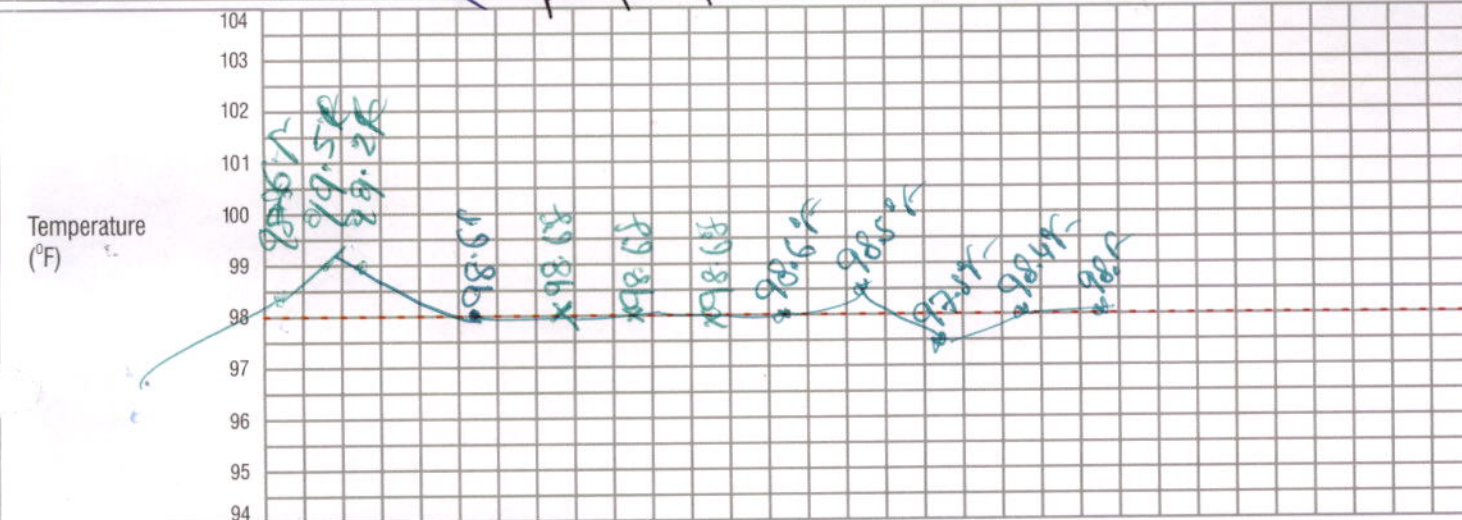 104
103
102
101
100
99
98
97
96
95
94
Temperature
(°F)
99.5F
99.2F
98.6F
98.6F
98.6F
98.6F
98.6°F
98.5°F
98.4F
98.F